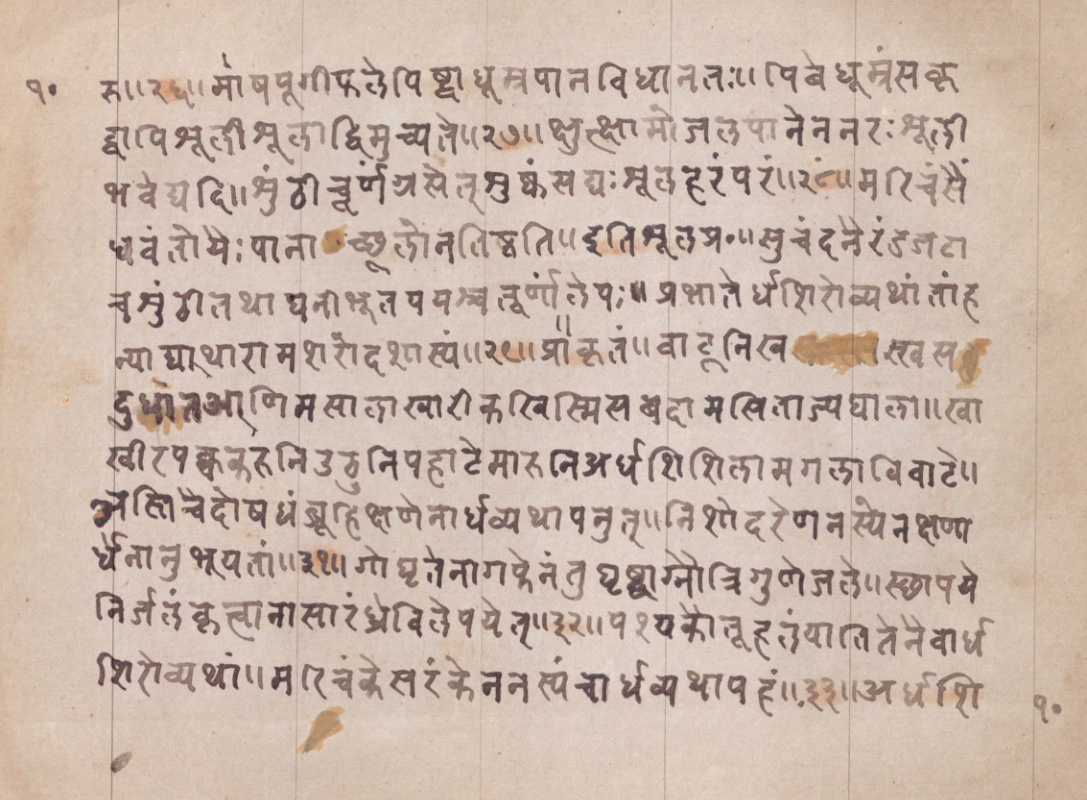 १०
म॥२६॥माषपूगीफलेपिष्ट्वाधूम्रपानविधानतः॥पिबेधूम्रंसकृ
द्वापिश्रूलीश्रूलाद्विमुच्यते॥२७॥क्षुत्क्षामोजलपानेननरःश्रूली
भवेद्यदि॥श्रुंठीचूर्णंग्रसेत्शुष्कंसद्यःश्रूलहरंपरं॥२८॥मरिचंसैं
धवंतोयैःपाना च्छूलोनतिष्ठति॥इतिश्रूलप्र॰॥सुचंदनैरंडजटा
चश्रुंठीतथाघनाभूतपयश्चतूर्णांलेपः॥प्रभातेर्धशिरोव्यथांतांह
न्याद्याथारामशरोदशास्यं॥२९॥प्राकृतं॥वाटूनिखव
आणिमसालाखारीकखिस्मिसबदामखिताज्यघाला॥खा
खीरपक्वकरुनिउठुनिपहाटेमारुनिअर्धशिशिलामगलाविवाटे॥
अस्तिचैदोषधंब्रूहिक्षणेनार्धव्यथापनुत्॥निशोदरेणनस्येनक्षणा
र्धेनानुभूयतां॥३१॥गोघृतेनागफेनंतुघृष्ट्वाग्नौत्रिगुणेजले॥स्छापये
निर्जलंकृत्वानासारंध्रेविलेपयेत्॥३२॥पश्यकौतूहलंयातितेनैवार्ध
शिरोव्यथां॥मरिचंकेसरंकेननस्यंचार्धव्यथापहं॥३३॥अर्धशि
१०